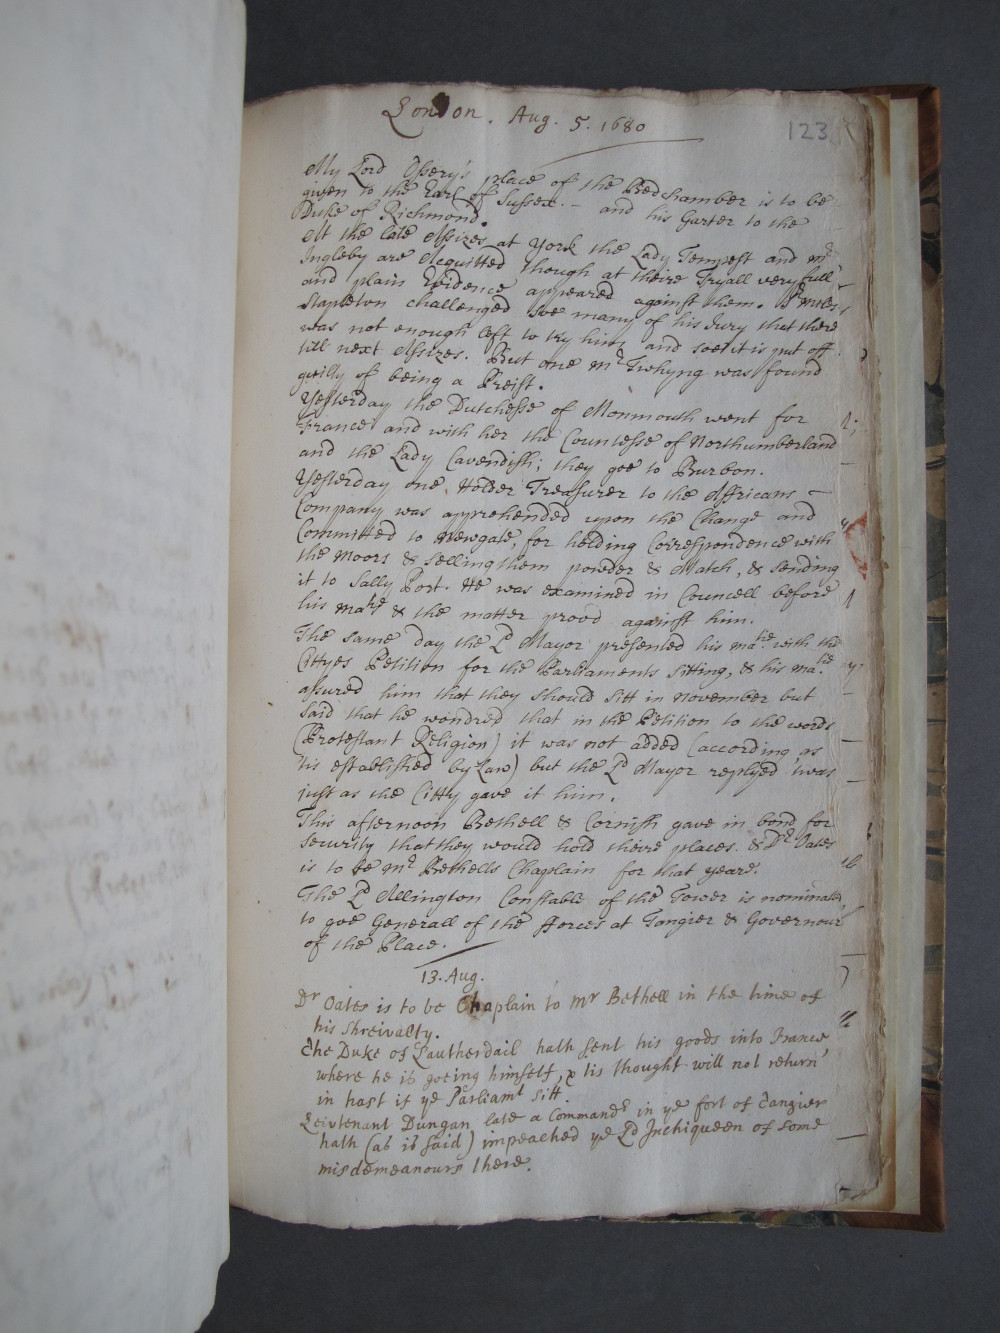 London. Aug. 5. 1680
123
My Lord Ossery's place of the Bedchamber is to be
given to the Earl of Sussex. – and his Garter to the
Duke of Richmond.
At the late Assizes at York the Lady Tempest and Mr
Ingleby are Acquitted though at theire Tryall very full
and plain Evidence appeared against them. Sr Miles
Stapleton challenged soe many of his Jury that there
was not enough left to try him, and soe it is put off
till next Assizes. But one Mr Twhyng was found
guilty of being a Preist.
Yesterday the Dutchesse of Monmouth went for
France and with her the Countesse of Northumberland
and the Lady Cavendish; they goe to Burbon.
Yesterday one Holder Treasurer to the Affricans –
Company was apprehended upon the Change and
Committed to Newgate, for holding Correspondence with
the Moors & selling them powder & Match, & sending
it to Sally Port. He was examined in Councell before
his Matie & the matter proov'd against him.
The same day the Ld Mayor presented his Matie with the
Cittyes Petition for the Parliaments sitting, & his Matie
assured him that they should sitt in November but
said that he wondred that in the Petition to the words
(Protestant Religion) it was not added (according as
'tis established by Law) but the Ld Mayor replyed 'twas
just as the Citty gave it him.
This afternoon Bethell & Cornish gave in bond for
security that they would hold theire places. & Dr Oates
is to be Mr Bethells Chaplain for that yeare.
The Ld Allington Constable of the Tower is nominated
to goe Generall of the fforces at Tangier & Governour
of the Place.
13. Aug.
Dr Oates is to be Chaplain to Mr Bethell in the time of
his shreivalty.
The Duke of Lautherdail hath sent his goods into France,
where he is goeing himself, & tis thought will not return
in hast if ye Parliamt sitt.
Leivtenant Dungan late a Commandr in ye fort of Tangier
hath (as is said) impeached ye Ld Inchiqueen of some
misdemeanours there.